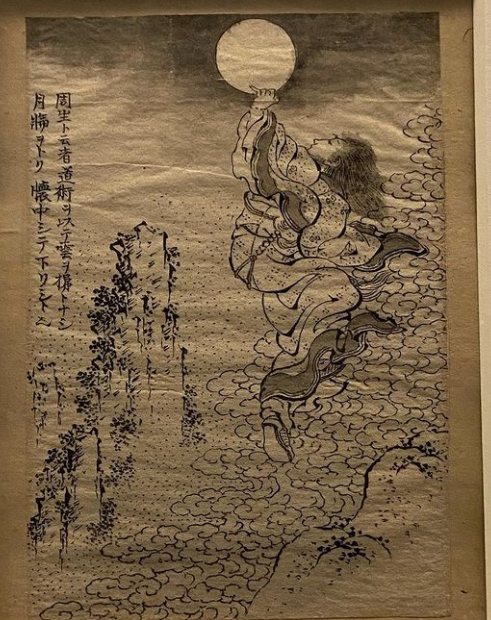 周生ト云者道術ヲ以テ雲ヲ梯トナシ
月輪ヲトリ懐中シテ下リシト云